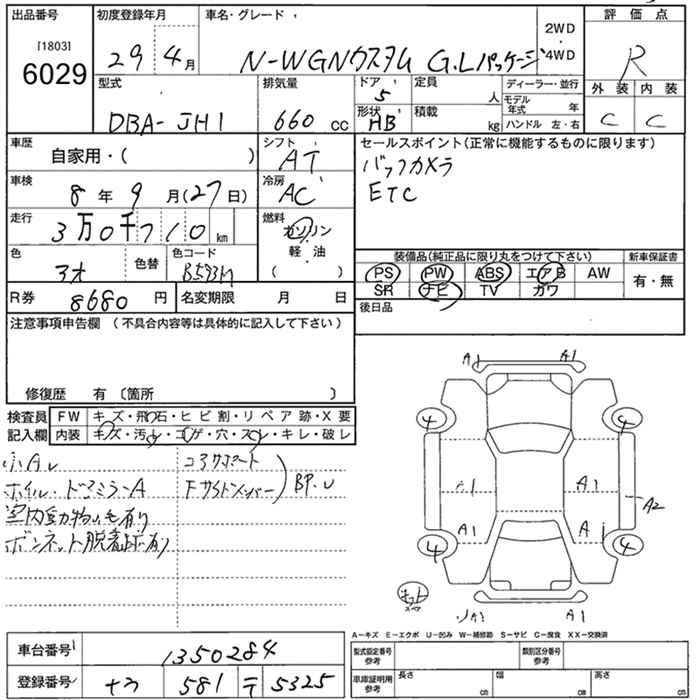 出品番号 初度登録年月 車名・グレード 評価点
[1803]
6029
29 4月 N-WGNカスタム G.Lパッケージ 2WD・4WD R
型式 排気量 ドア 5 定員 人 ディーラー・並行 外装 内装
DBA-JH1 660 cc 形状 HB 積載 kg モデル年式 年 C C
ハンドル 左・右
車歴 自家用・( ) シフト AT セールスポイント(正常に機能するものに限ります)
バックカメラ
車検 8年9月(27日) 冷房 AC ETC
走行 3万0千710km 燃料 ガソリン・軽油 ( )
色 アオ 色替 色コード B593M
装備品(純正品に限り丸をつけて下さい) 新車保証書
PS PW ABS エアB AW 有・無
SR ナビ TV ガワ
R券 8680円 名変期限 月 日 後日品
注意事項申告欄 (不具合内容等は具体的に記入して下さい)
修復歴 有 〔箇所 〕
検査員記入欄 FW キズ・飛石・ヒビ割・リペア跡・X要
内装 キズ・汚レ・コゲ・穴・スレ・キレ・破レ
小Aレ コアサポート
ホイル・ドアミラーA Fサイドメンバー BP.U
室内動物ノ毛有り
ボンネット脱着跡有り
A1 A1
4 4
A1 A1
A2
A1 A1
4 4
スペア
A1 A1
A-キズ E-エクボ U-凹み W-補修跡 S-サビ C-腐食 XX-交換済
車台番号 1350284 型式指定番号 参考 類別区分番号 参考
登録番号 581 テ 5325 車庫証明用 参考 長さ cm 幅 cm 高さ cm